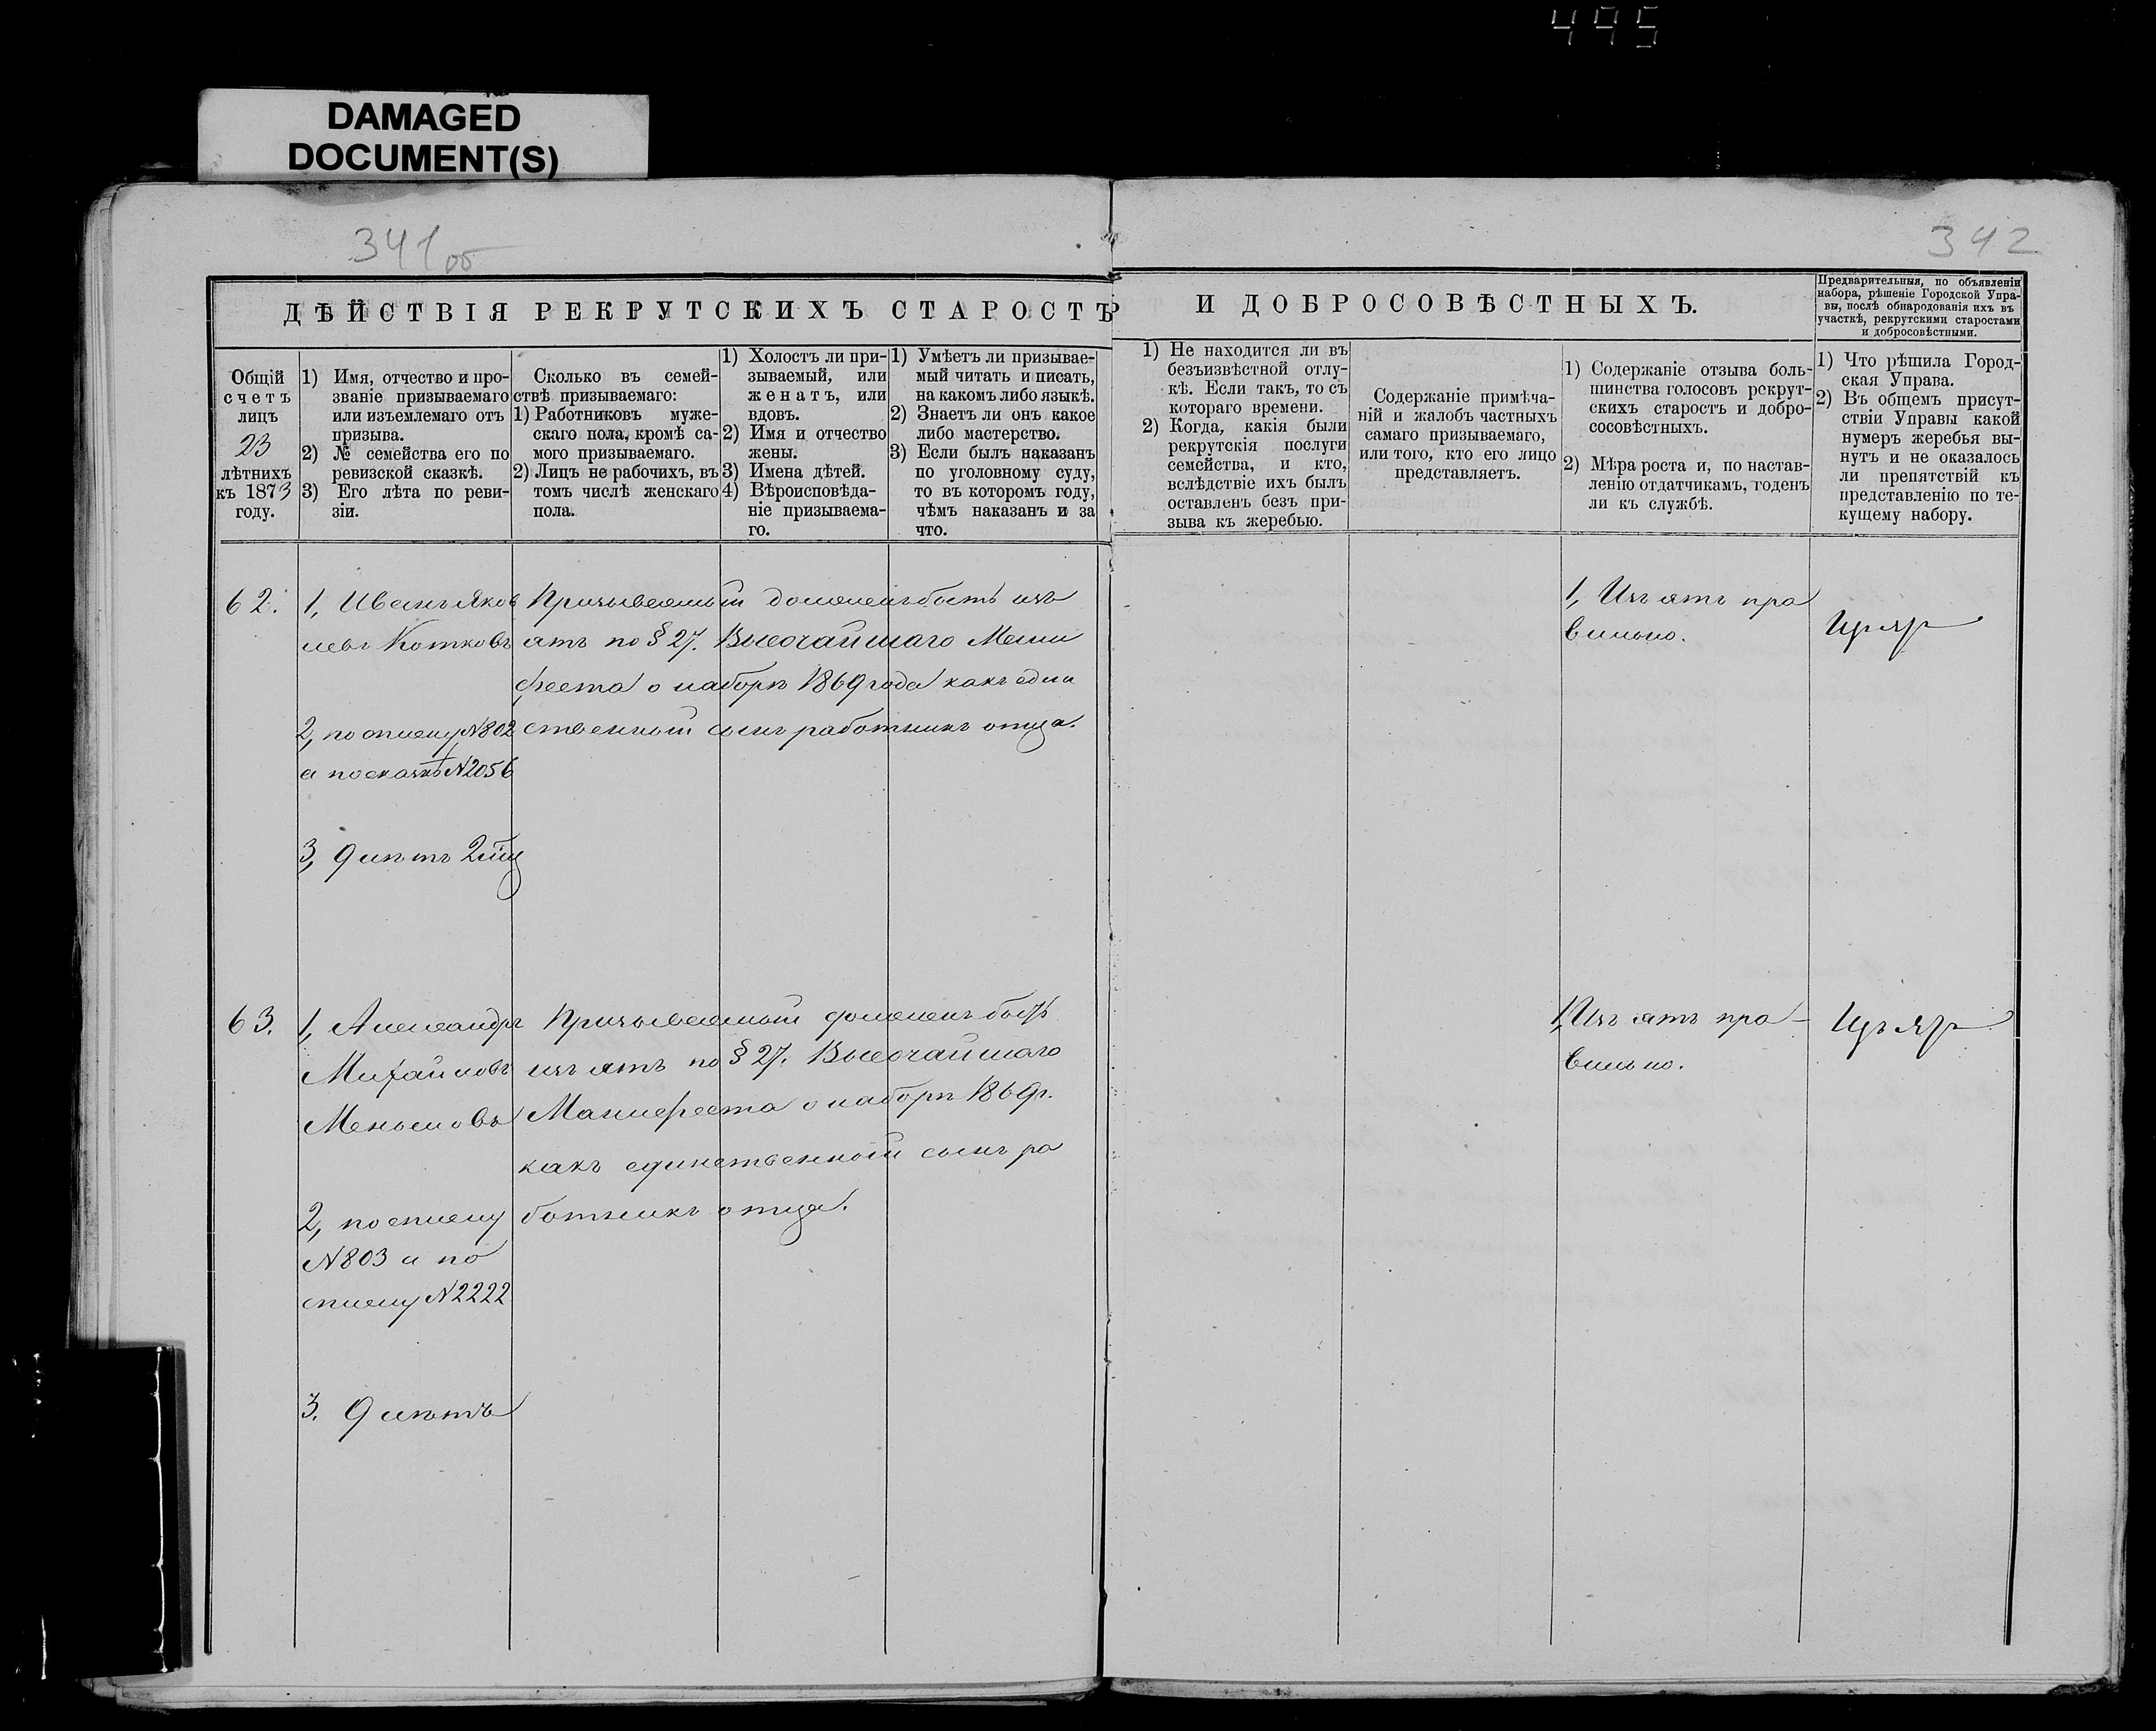 495
DAMAGED
DOCUMENT(S)
341 об
342
ДѢЙСТВІЯ РЕКРУТСКИХЪ СТАРОСТЪ
И ДОБРОСОВѢСТНЫХЪ.
Предварительныя, по объявленіи
набора, рѣшеніе Городской Упра-
вы, послѣ обнародованія ихъ въ
участкѣ, рекрутскими старостами
и добросовѣстными.
Общій
счетъ
лицъ
23
лѣтнихъ
къ 1873
году.
1) Имя, отчество и про-
званіе призываемаго
или изъемлемаго отъ
призыва.
2) № семейства его по
ревизской сказкѣ.
3) Его лѣта по реви-
зіи.
Сколько въ семей-
ствѣ призываемаго:
1) Работниковъ муже-
скаго пола, кромѣ са-
мого призываемаго.
2) Лицъ не рабочихъ, въ
томъ числѣ женскаго
пола.
1) Холостъ ли при-
зываемый, или
женатъ, или
вдовъ.
2) Имя и отчество
жены.
3) Имена дѣтей.
4) Вѣроисповѣда-
ніе призываема-
го.
1) Умѣетъ ли призывае-
мый читать и писать,
на какомъ либо языкѣ.
2) Знаетъ ли онъ какое
либо мастерство.
3) Если былъ наказанъ
по уголовному суду,
то въ которомъ году,
чѣмъ наказанъ и за
что.
1) Не находится ли въ
безъизвѣстной отлу-
кѣ. Если такъ, то съ
котораго времени.
2) Когда, какія были
рекрутскія послуги
семейства, и кто,
вслѣдствіе ихъ былъ
оставленъ безъ при-
зыва къ жеребью.
Содержаніе примѣча-
ній и жалобъ частныхъ
самаго призываемаго,
или того, кто его лицо
представляетъ.
1) Содержаніе отзыва боль-
шинства голосовъ рекрут-
скихъ старостъ и добро-
сосовѣстныхъ.
2) Мѣра роста и, по настав-
ленію отдатчикамъ, годенъ
ли къ службѣ.
1) Что рѣшила Город-
ская Управа.
2) Въ общемъ присут-
ствіи Управы какой
нумеръ жеребья вы-
нутъ и не оказалось
ли препятствій къ
представленію по те-
кущему набору.
62.
1, Иванъ Яков
левъ Котковъ
2, по списку №802
а по сказкѣ №2056
3, 9 лѣтъ 2 мѣц
Призываемый долженъ быть изъ
ятъ по § 27. Высочайшаго Мани
феста о наборѣ 1869 года какъ един
ственный сынъ работникъ отца.
1, Изъятъ пра
вильно.
63.
1, Александръ
Михайловъ
Меньшовъ
2, по списку
№803 а по
списку №2222
3. 9 лѣтъ
Призываемый долженъ быть
изъятъ по § 27. Высочайшаго
Манифеста о наборѣ 1869г.
какъ единственный сынъ ра
ботникъ отца.
1, Изъятъ пра-
вильно.